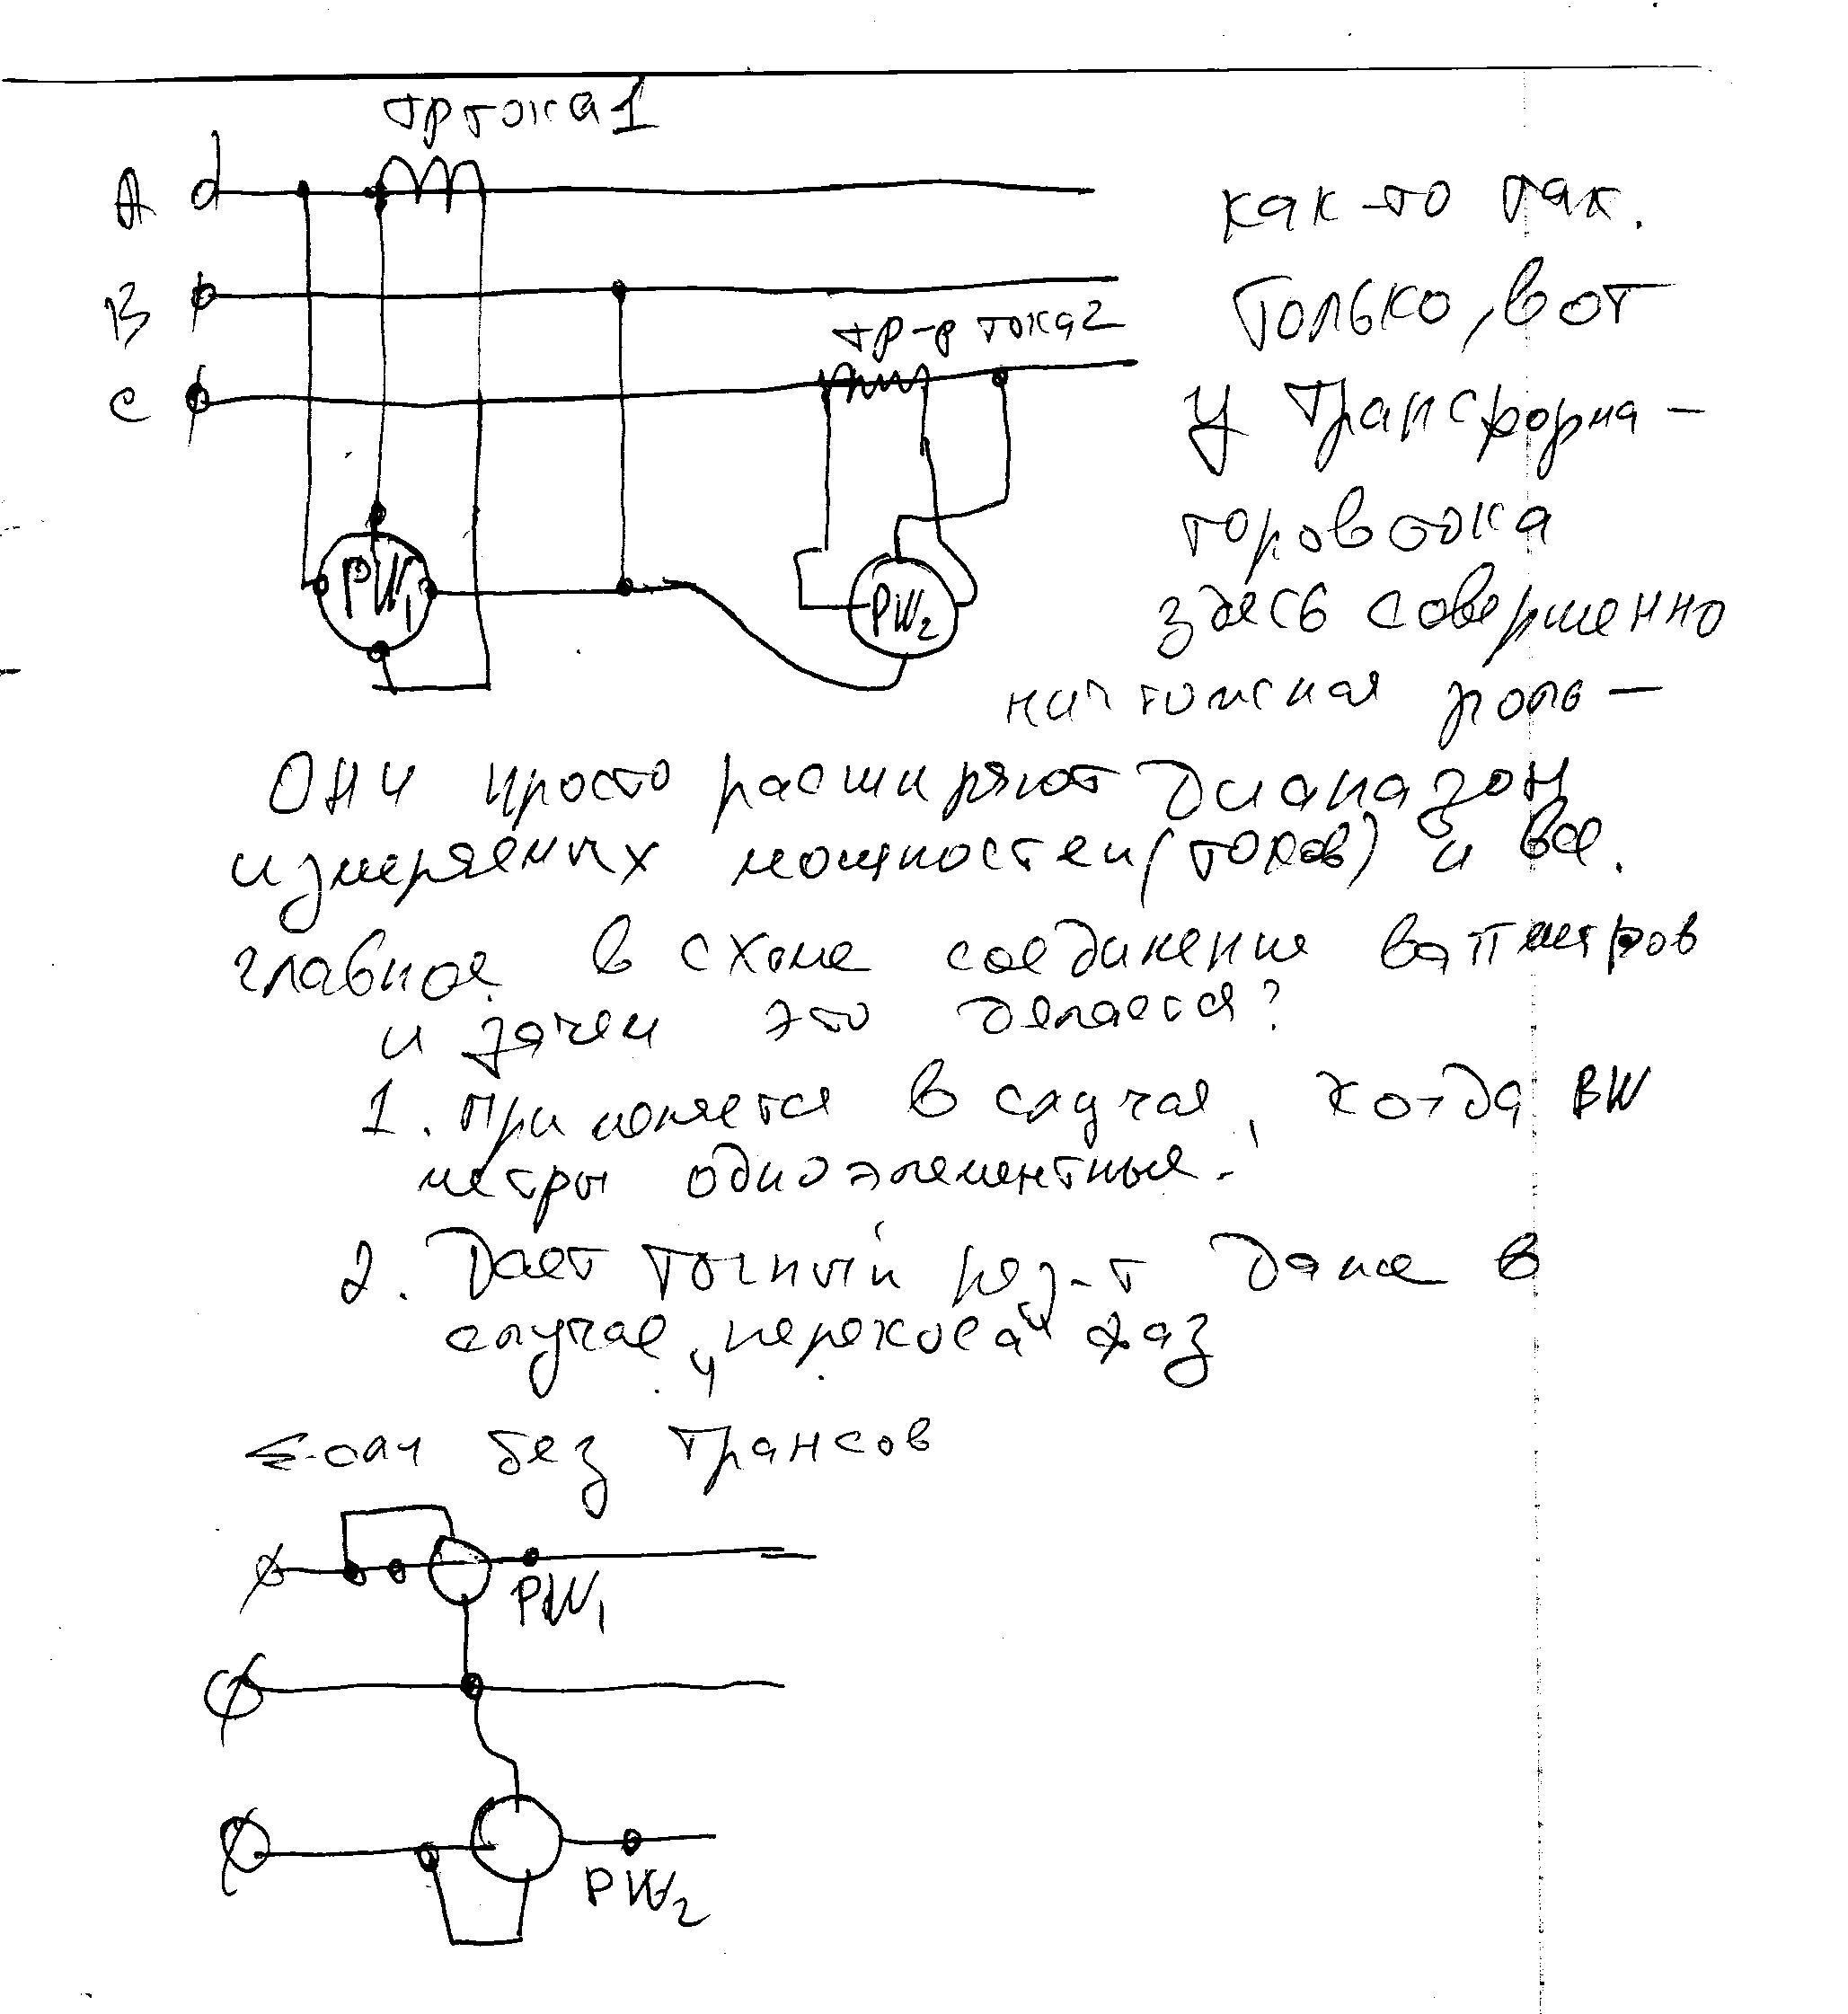 тр тока 1
А
как-то так.
В
только, вот
тр-р тока 2
С
у трансформа-
торов тока
PW1
PW2
здесь совершенно
ничтожная роль —
Они просто расширяют диапазон
измеряемых мощностей (токов) и все.
главное в схеме соединение ваттметров
и зачем это делается?
1. Применяется в случае, когда ВW
метры одноэлементные.
2. Дает точный рез-т даже в
случае „перекоса“ фаз
Если без трансов
PW1
PW2